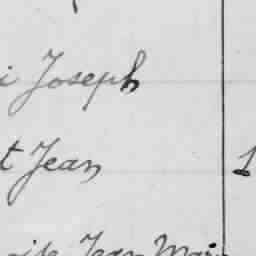 i Joseph
t Jean 1
Jean Marie